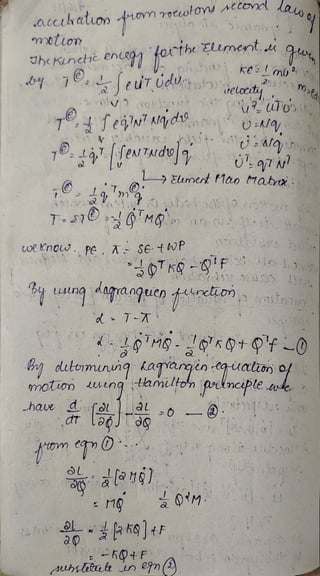 accelration from newtons second law of
motion
The kinetic energy for the Element is given
by T^e = 1/2 ∫ e u̇ᵀ u̇ dv.
v
ke = 1/2 mv²
velocity
u̇² = u̇ᵀ u̇
T^e = 1/2 ∫ e q̇ᵀ Nᵀ N q̇ dv
v
U = Nq
U̇ = Nq̇
T^e = 1/2 q̇ᵀ [∫ e Nᵀ N dv] q̇
v
U̇ᵀ = q̇ᵀ Nᵀ
→ Element Mass Matrix
T^e = 1/2 q̇ᵀ m^e q̇
T = ΣT^e = 1/2 Q̇ᵀ M Q̇
we know. PE, π = SE + WP
= 1/2 Qᵀ K Q - Qᵀ F
By using Lagrangien function
L = T - π
L = 1/2 Q̇ᵀ M Q̇ - 1/2 Qᵀ K Q + Qᵀ F — ①
By determining Lagrangein equation of
motion using Hamilton principle we
have d/dt [∂L/∂Q̇] - ∂L/∂Q = 0 — ②
from eqn ① . . .
∂L/∂Q̇ = 1/2 [2MQ̇]
= MQ̇ 1/2 Q²M.
∂L/∂Q = -1/2 [2KQ] + F
= -KQ + F
substitute in eqn ②